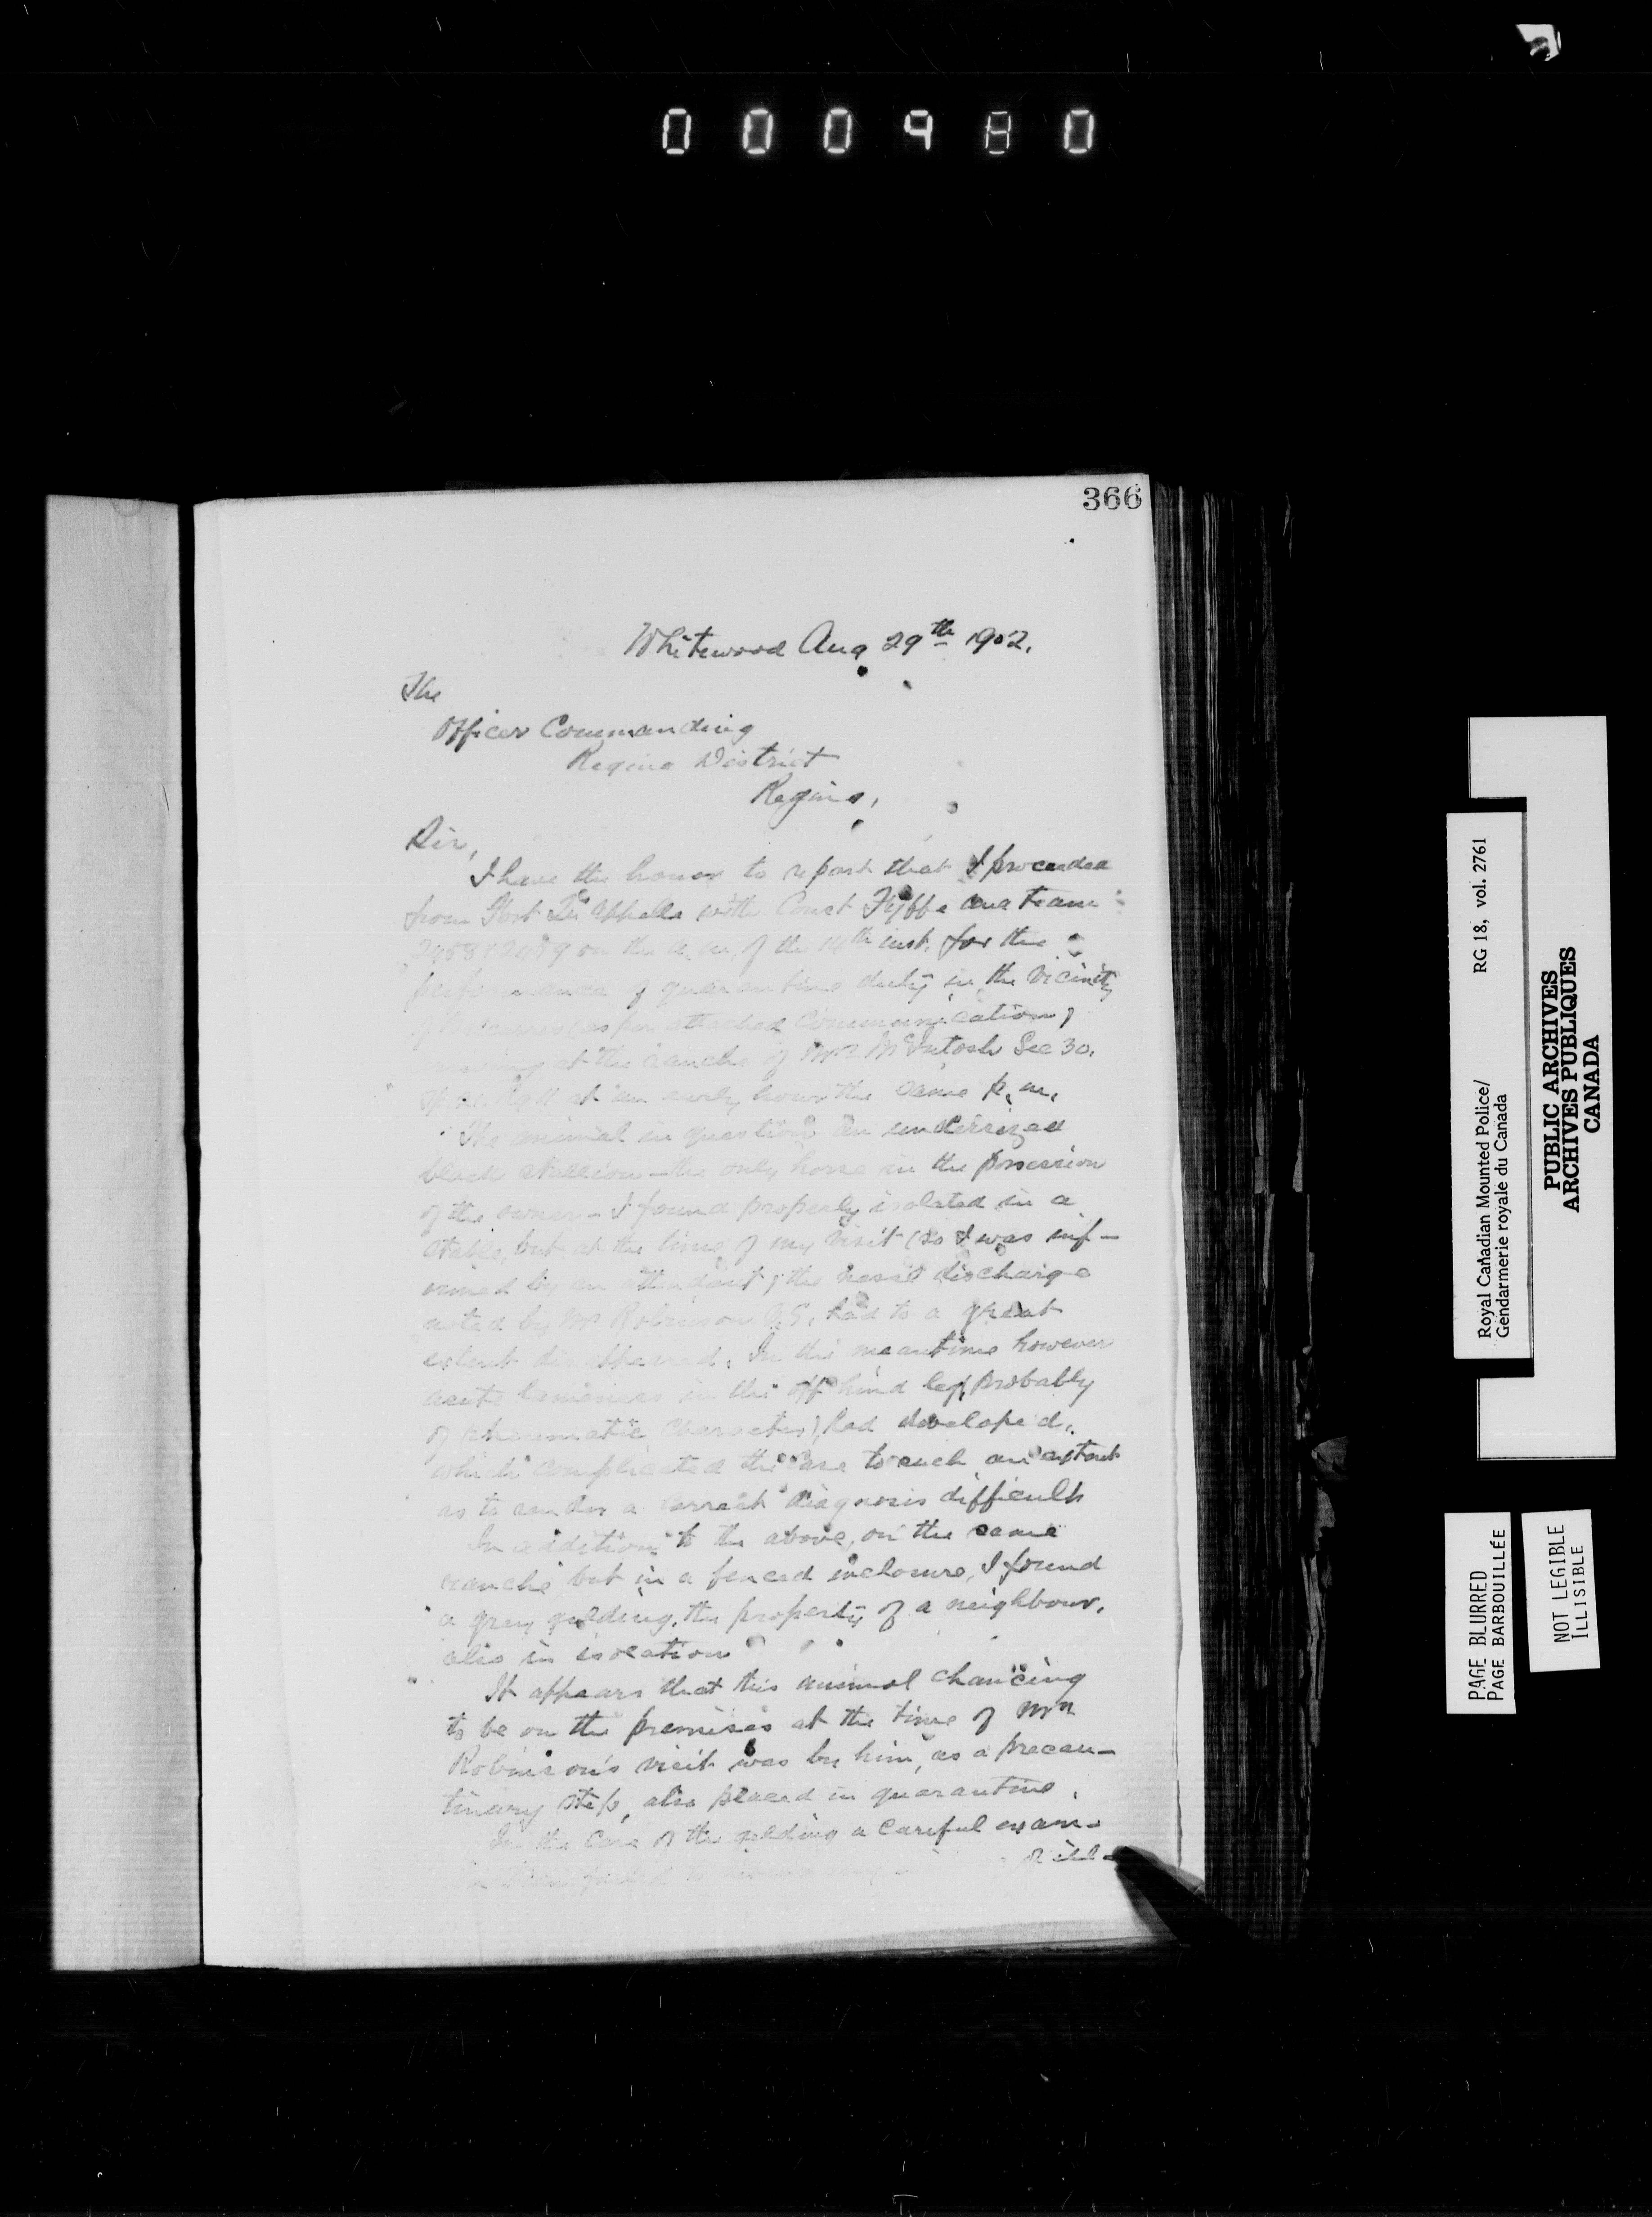 000980
366
Whitewood Aug 29th 1902.
The
Officer Commanding
Regina District
Regina,
Sir,
I have the honor to report that I proceeded
from Fort Qu'Appelle with Const and team
on the a.m. of the 14th inst. for the
performance of quarantine duty in the vicinity
of (as per attached communication)
at the ranche of Mr McIntosh Sec 30.
at an early hour the same p.m.
The animal in question an undersized
black stallion - the only horse in the possession
of the owner - I found properly isolated in a
stable, but at the time of my visit (so I was inf-
ormed by an attendant) the nasal discharge
noted by Mr Robinson V.S. had to a great
extent disappeared. In the meantime however
acute lameness in the off hind leg (probably
of rheumatic character) had developed,
which complicated the case to such an extent
as to render a correct diagnosis difficult
In addition to the above, on the same
ranche but in a fenced inclosure, I found
a grey gelding, the property of a neighbour,
also in isolation
It appears that this animal chancing
to be on the premises at the time of Mr
Robinson's visit was by him, as a precau-
tinary step, also placed in quarantine.
In the case of the gelding a careful exam-
failed to
Royal Canadian Mounted Police/ RG 18, vol. 2761
Gendarmerie royale du Canada
PUBLIC ARCHIVES
ARCHIVES PUBLIQUES
CANADA
PAGE BLURRED
PAGE BARBOUILLÉE
NOT LEGIBLE
ILLISIBLE